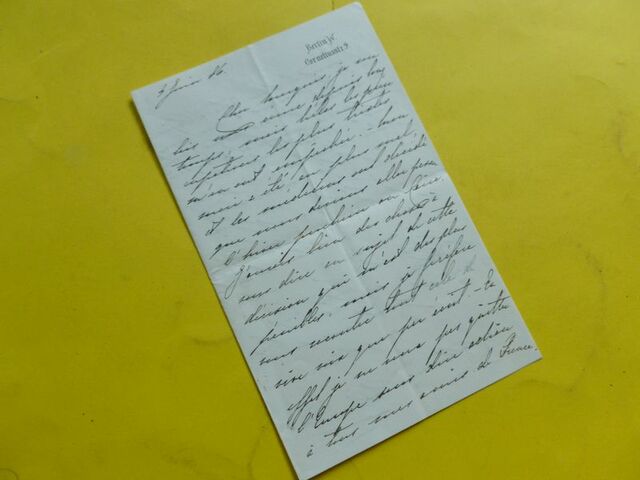 Berlin W.
Corneliusstr. 9
Juin 86.
Cher marquis je
depuis bien
temps, mais hélas les plus
les plus tristes
m'en ont empêchée. - mon
mari a été on plus mal
et les médecins ont décidé
que nous devions aller passer
l'hiver prochain en
J'aurais bien des choses à
vous dire au sujet de cette
décision qui m'est des plus
pénibles, mais je préfère
vous raconter tout cela de
vive voix que par écrit - En
effet je ne veux pas quitter
l'Europe sans dire adieu
à tous mes amis de France.